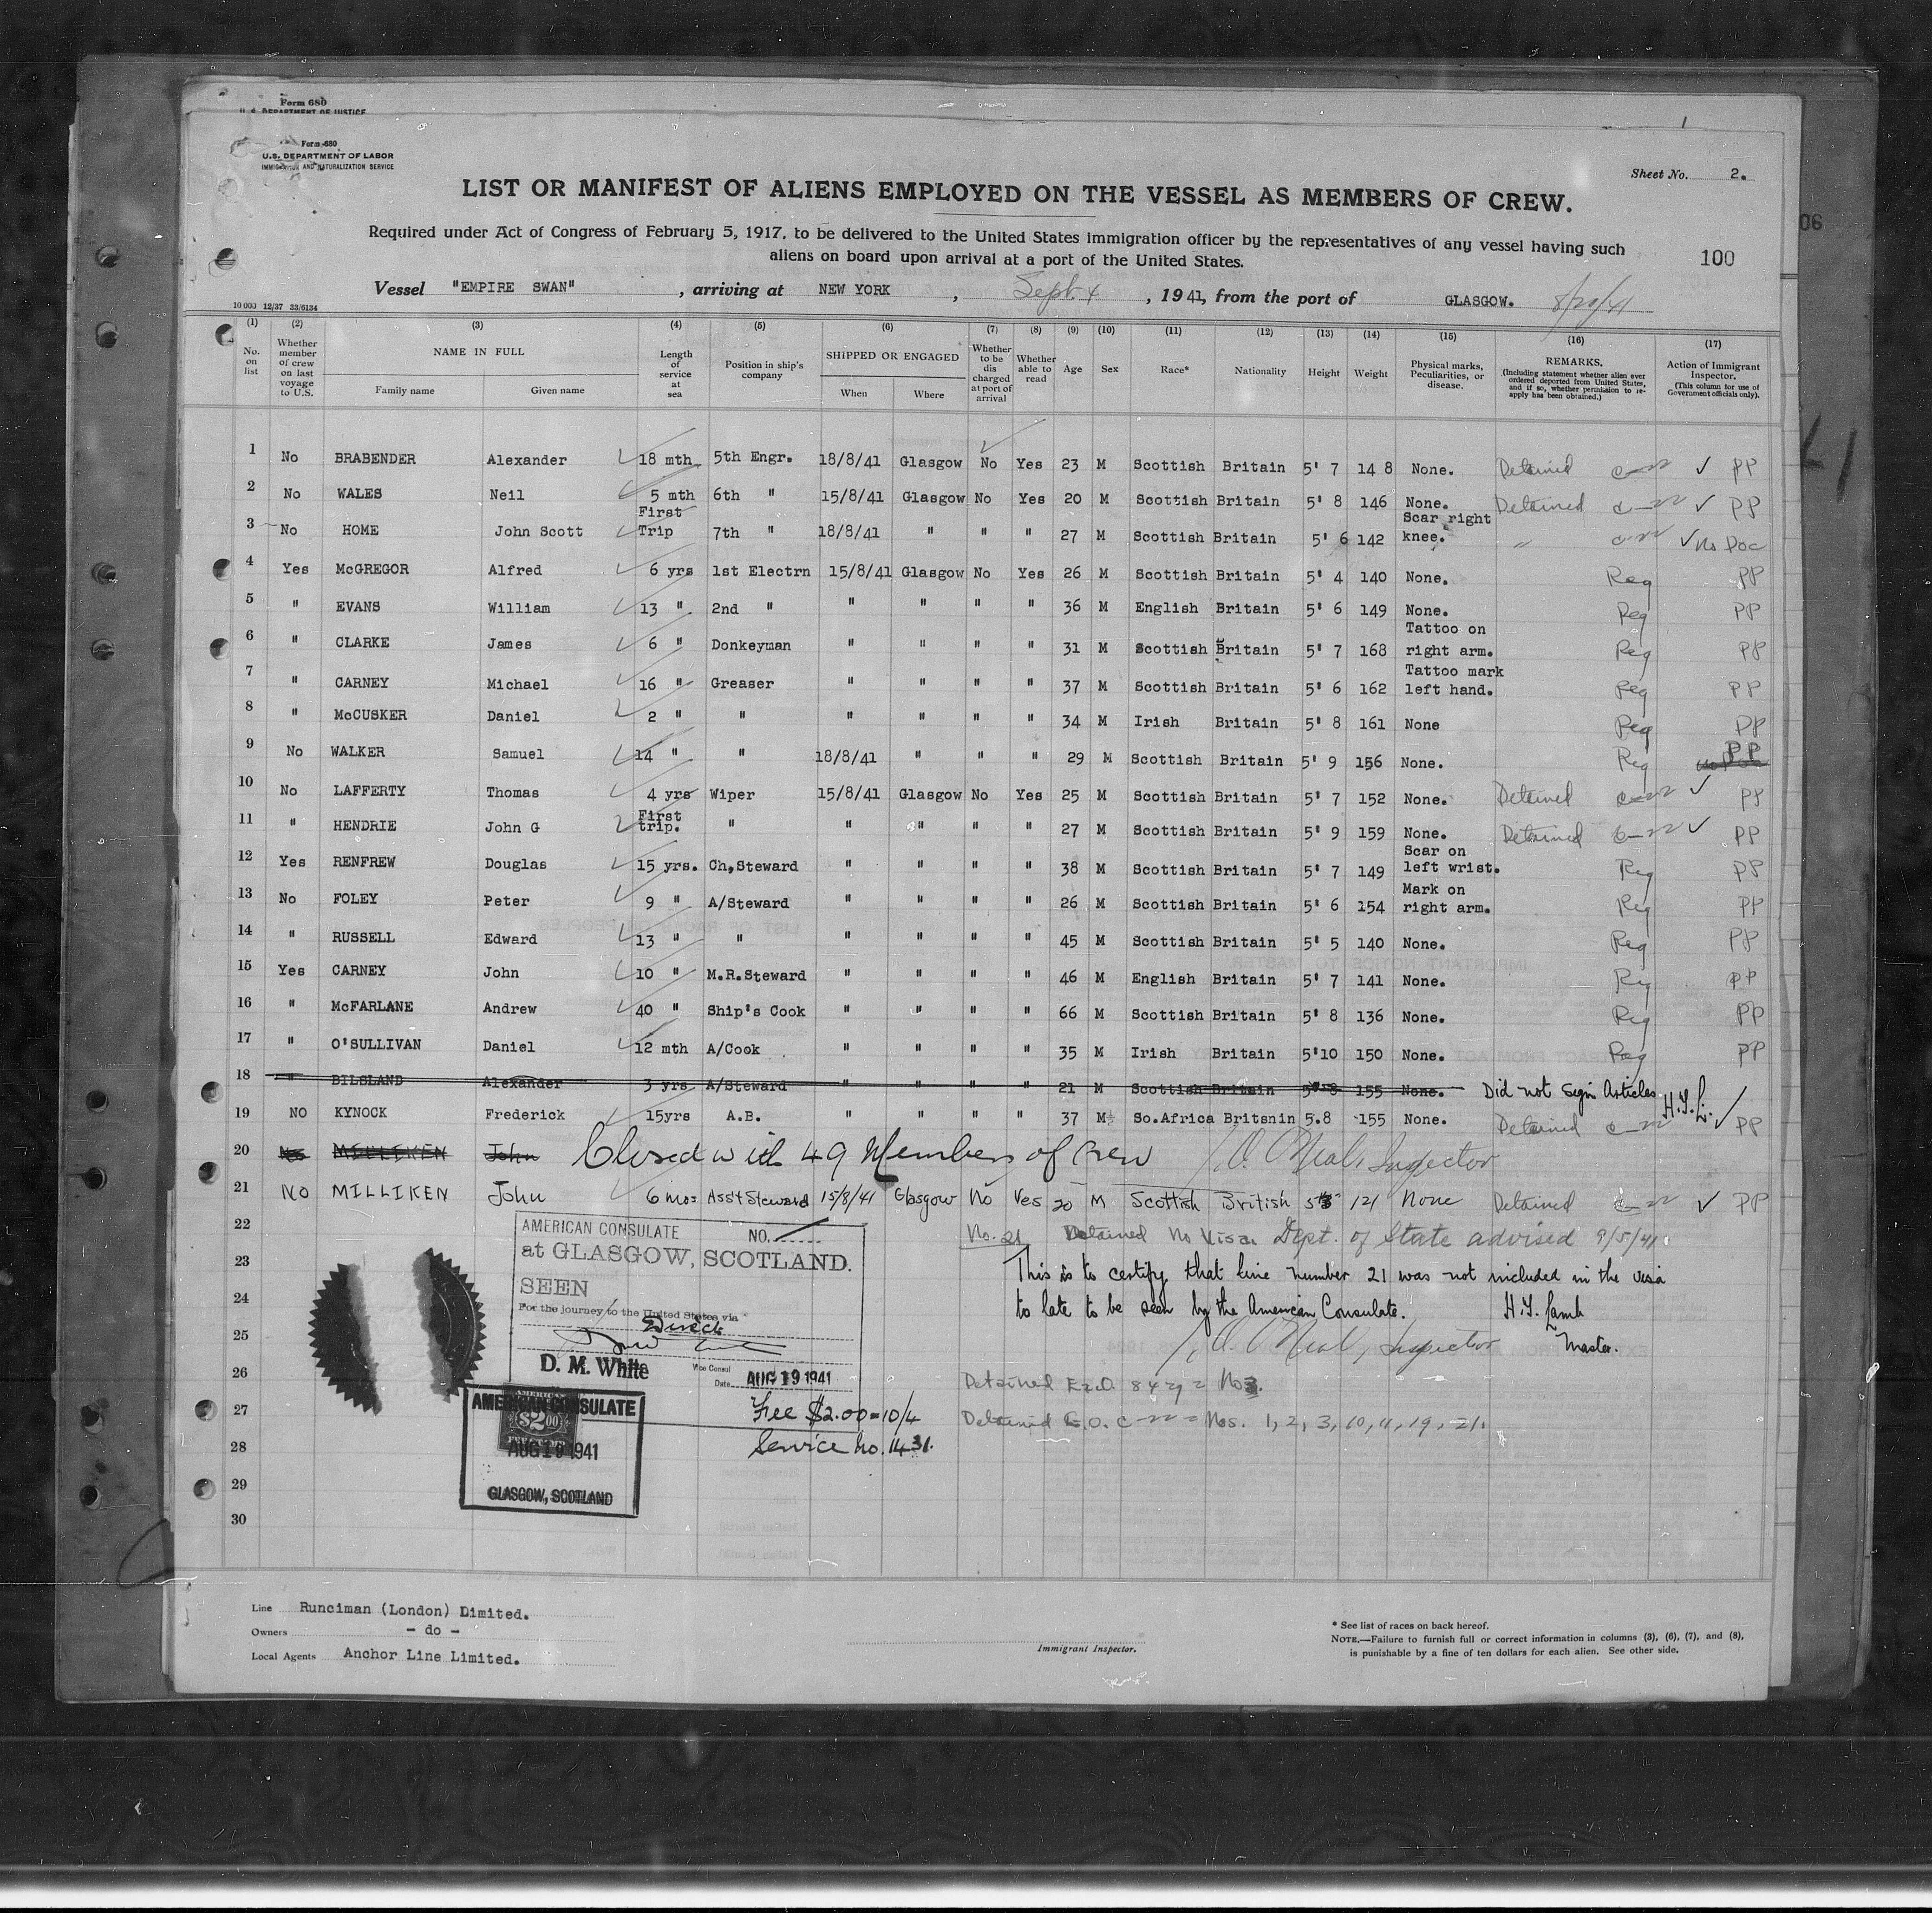 Form 680
U. S. DEPARTMENT OF JUSTICE
Form 680
U.S. DEPARTMENT OF LABOR
IMMIGRATION AND NATURALIZATION SERVICE
Sheet No. 2.
LIST OR MANIFEST OF ALIENS EMPLOYED ON THE VESSEL AS MEMBERS OF CREW.
Required under Act of Congress of February 5, 1917, to be delivered to the United States immigration officer by the representatives of any vessel having such
aliens on board upon arrival at a port of the United States.
100
Vessel "EMPIRE SWAN", arriving at NEW YORK, Sept. 4, 1941, from the port of GLASGOW. 8/20/41
10 000 12/37 33/6134
(1) (2) (3) (4) (5) (6) (7) (8) (9) (10) (11) (12) (13) (14) (15) (16) (17)
No. on list
Whether member of crew on last voyage to U.S.
NAME IN FULL
Family name Given name
Length of service at sea
Position in ship's company
SHIPPED OR ENGAGED
When Where
Whether to be dis charged at port of arrival
Whether able to read
Age Sex Race* Nationality Height Weight
Physical marks, Peculiarities, or disease.
REMARKS.
(Including statement whether alien ever ordered deported from United States, and if so, whether permission to re-apply has been obtained.)
Action of Immigrant Inspector.
(This column for use of Government officials only).
1 No BRABENDER Alexander 18 mth 5th Engr. 18/8/41 Glasgow No Yes 23 M Scottish Britain 5' 7 14 8 None. Detained ✓ PP
2 No WALES Neil 5 mth 6th " 15/8/41 Glasgow No Yes 20 M Scottish Britain 5' 8 146 None. Detained ✓ PP
3 No HOME John Scott First Trip 7th " 18/8/41 " " " 27 M Scottish Britain 5' 6 142 Scar right knee. " ✓ No Doc
4 Yes McGREGOR Alfred 6 yrs 1st Electrn 15/8/41 Glasgow No Yes 26 M Scottish Britain 5' 4 140 None. Reg PP
5 " EVANS William 13 " 2nd " " " " " 36 M English Britain 5' 6 149 None. Reg PP
6 " CLARKE James 6 " Donkeyman " " " " 31 M Scottish Britain 5' 7 168 Tattoo on right arm. Reg PP
7 " CARNEY Michael 16 " Greaser " " " " 37 M Scottish Britain 5' 6 162 Tattoo mark left hand. Reg PP
8 " McCUSKER Daniel 2 " " " " " " 34 M Irish Britain 5' 8 161 None Reg PP
9 No WALKER Samuel 14 " " 18/8/41 " " " 29 M Scottish Britain 5' 9 156 None. Reg PP
10 No LAFFERTY Thomas 4 yrs Wiper 15/8/41 Glasgow No Yes 25 M Scottish Britain 5' 7 152 None. Detained ✓ PP
11 " HENDRIE John G First trip. " " " " " 27 M Scottish Britain 5' 9 159 None. Detained ✓ PP
12 Yes RENFREW Douglas 15 yrs. Ch,Steward " " " " 38 M Scottish Britain 5' 7 149 Scar on left wrist. Reg PP
13 No FOLEY Peter 9 " A/Steward " " " " 26 M Scottish Britain 5' 6 154 Mark on right arm. Reg PP
14 " RUSSELL Edward 13 " " " " " " 45 M Scottish Britain 5' 5 140 None. Reg PP
15 Yes CARNEY John 10 " M.R.Steward " " " " 46 M English Britain 5' 7 141 None. Reg PP
16 " McFARLANE Andrew 40 " Ship's Cook " " " " 66 M Scottish Britain 5' 8 136 None. Reg PP
17 " O'SULLIVAN Daniel 12 mth A/Cook " " " " 35 M Irish Britain 5'10 150 None. Reg PP
18 " BILSLAND Alexander 3 yrs A/Steward " " " " 21 M Scottish Britain 5' 8 155 None. Did not sign Articles H.Y.L.
19 NO KYNOCK Frederick 15yrs A.B. " " " " 37 M So.Africa Britsnin 5.8 155 None. Detained ✓ PP
20 Yes MILLIKEN John Closed with 49 Members of Crew J.O. O'Neal, Inspector
21 NO MILLIKEN John 6 mos Ass't Steward 15/8/41 Glasgow No Yes 20 M Scottish British 121 None Detained ✓ PP
22 No. 21 Detained No Visa. Dept. of State advised 9/5/41
23 This is to certify that line number 21 was not included in the visa
24 to late to be seen by the American Consulate. H.Y. Lamb
25 J.O. O'Neal, Inspector Master.
26 Detained No 3.
27 Detained E.O. Nos. 1, 2, 3, 10, 11, 19, 21.
28
29
30
AMERICAN CONSULATE NO.
at GLASGOW, SCOTLAND.
SEEN
For the journey to the United States via
Direct
D. M. White
Vice Consul
Date AUG 19 1941
Fee $2.00 = 10/4
Service No. 1431.
AMERICAN CONSULATE
$2.00
AUG 19 1941
GLASGOW, SCOTLAND
Line Runciman (London) Limited.
Owners - do -
Local Agents Anchor Line Limited.
Immigrant Inspector.
* See list of races on back hereof.
NOTE.—Failure to furnish full or correct information in columns (3), (6), (7), and (8),
is punishable by a fine of ten dollars for each alien. See other side.